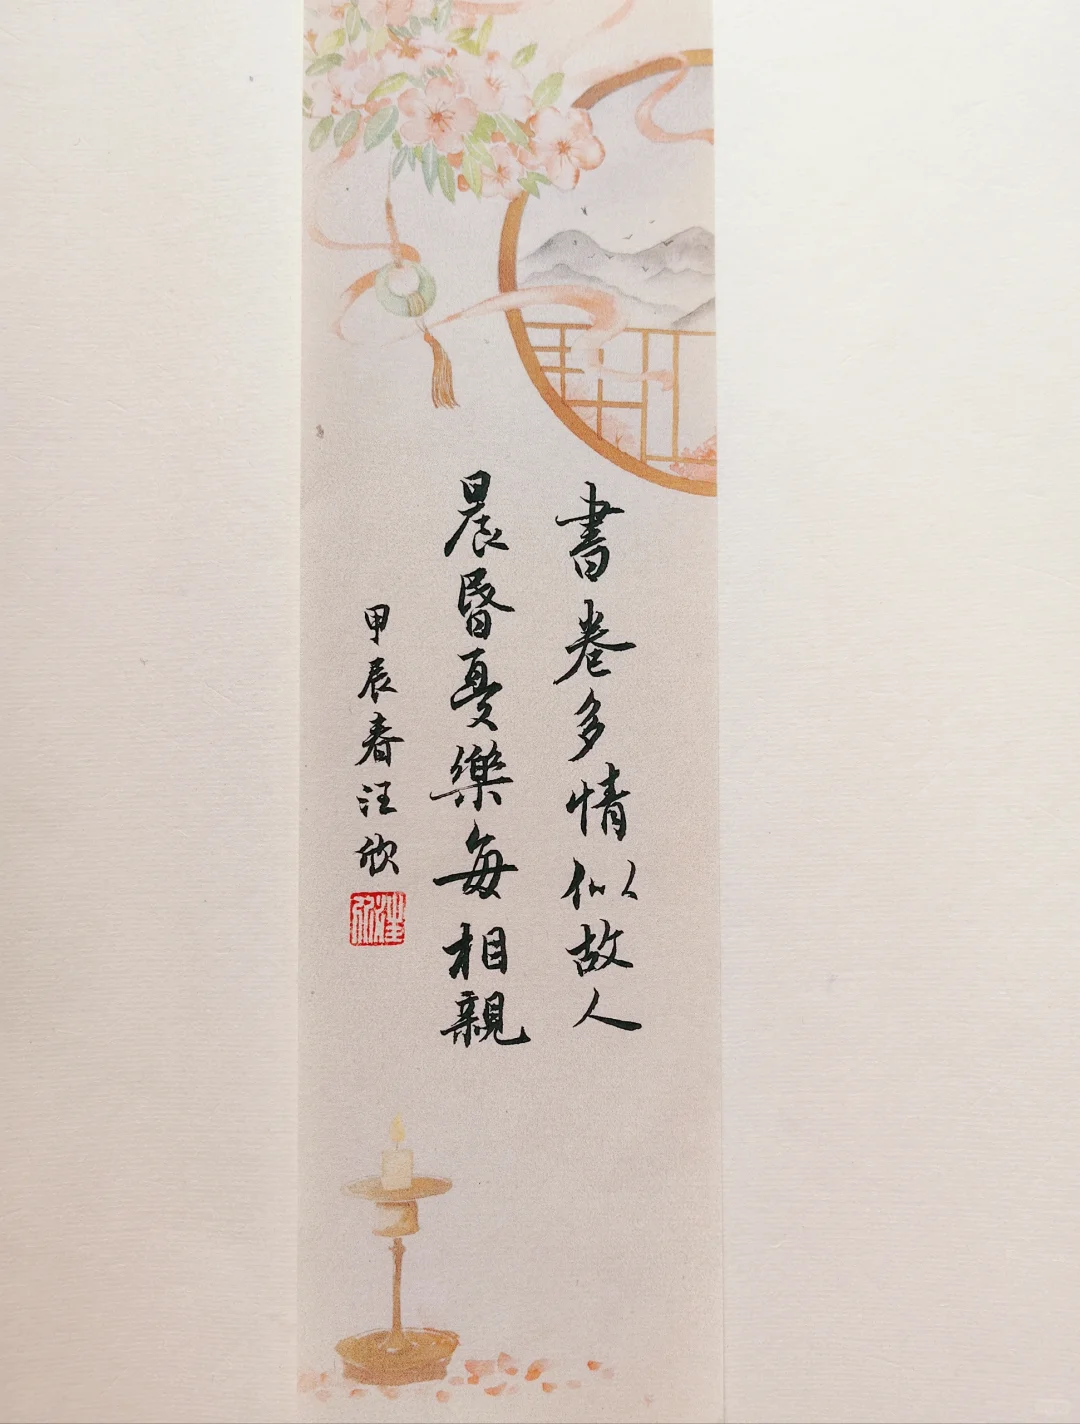 書卷多情似故人
晨昬憂樂每相親
甲辰春汪欣